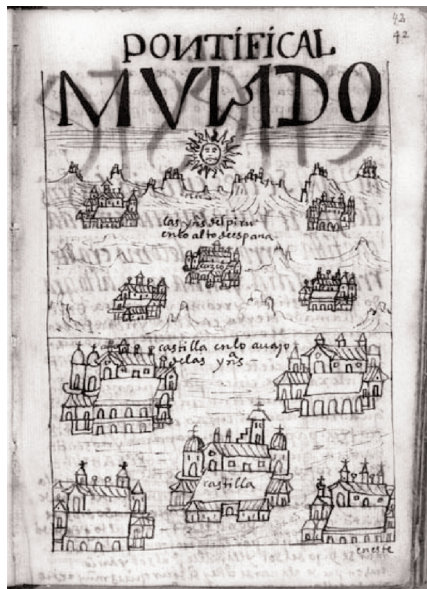 42
42
PONTIFICAL
MVNDO
las yns del piru
en lo alto de españa
cuzco
castilla en lo auajo
de las yns
castilla
en este